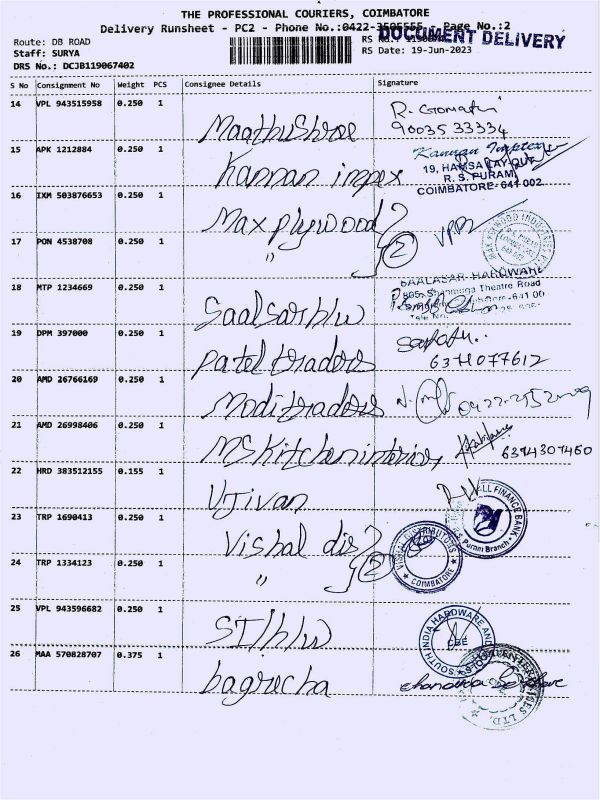 THE PROFESSIONAL COURIERS, COIMBATORE
Delivery Runsheet - PC2 - Phone No.:0422-3505555 Page No.:2
DOCUMENT DELIVERY
Route: DB ROAD
Staff: SURYA
RS Date: 19-Jun-2023
DRS No.: DCJB119067402
S No Consignment No Weight PCS Consignee Details Signature
14 VPL 943515958 0.250 1 Maathushree R. Gomathi
90035 33334
15 APK 1212884 0.250 1 Kannan impex Kannan Impex
19, HAMSA LAY-OUT
R. S. PURAM,
COIMBATORE-641 002
16 IXM 503876653 0.250 1 Maxplywood
17 PON 4538708 0.250 1 " 2
18 MTP 1234669 0.250 1 Saalsar h/w
Theatre Road
19 DPM 397000 0.250 1 Patel traders
6374077612
20 AMD 26766169 0.250 1 Modi traders
21 AMD 26998406 0.250 1 MS Kitchen interior,
6374307460
22 HRD 383512155 0.155 1 Ujivan
FINANCE BANK
Puram Branch
23 TRP 1690413 0.250 1 Vishal dis
VISHAL DISTRIBUTORS
COIMBATORE
24 TRP 1334123 0.250 1 " 2
25 VPL 943596682 0.250 1 SI h/w
SOUTH INDIA HARDWARE AND
CBE
26 MAA 570828707 0.375 1 bagrecha